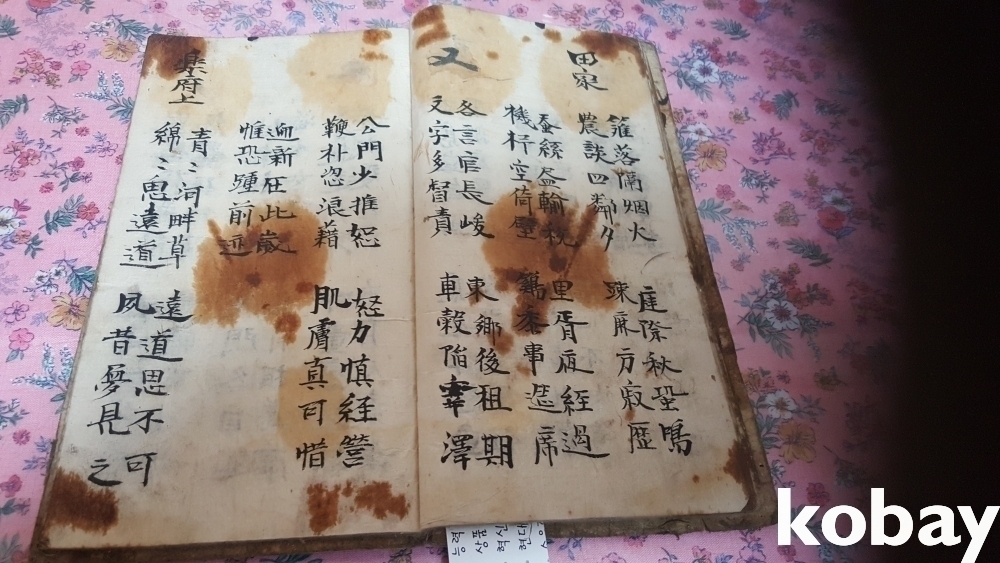 田家
籬落隔烟火 庭際秋蛩鳴
農談四鄰夕 疎麻方寂歴
蚕絲盆輸税 里胥夜經過
機杼空倚壁 鷄黍事筵席
又
各言官長峻 東鄉後租期
文字多督責 車轂陷 澤
公門少推恕 努力慎経営
鞭朴恣浪藉 肌膚真可惜
迎新在此歳
惟恐踵前迹
樂府上
青〻河畔草 遠道思不可
綿〻思遠道 夙昔夢見之
kobay